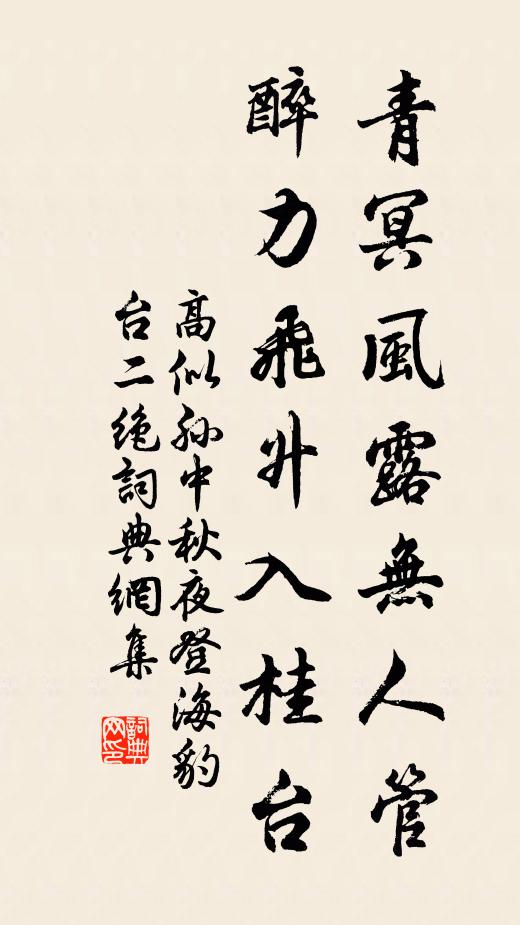 青冥風露無人管
醉力飛升入桂台
高似孙中秋夜登海豹
台二绝詞典網集
詞典
网印